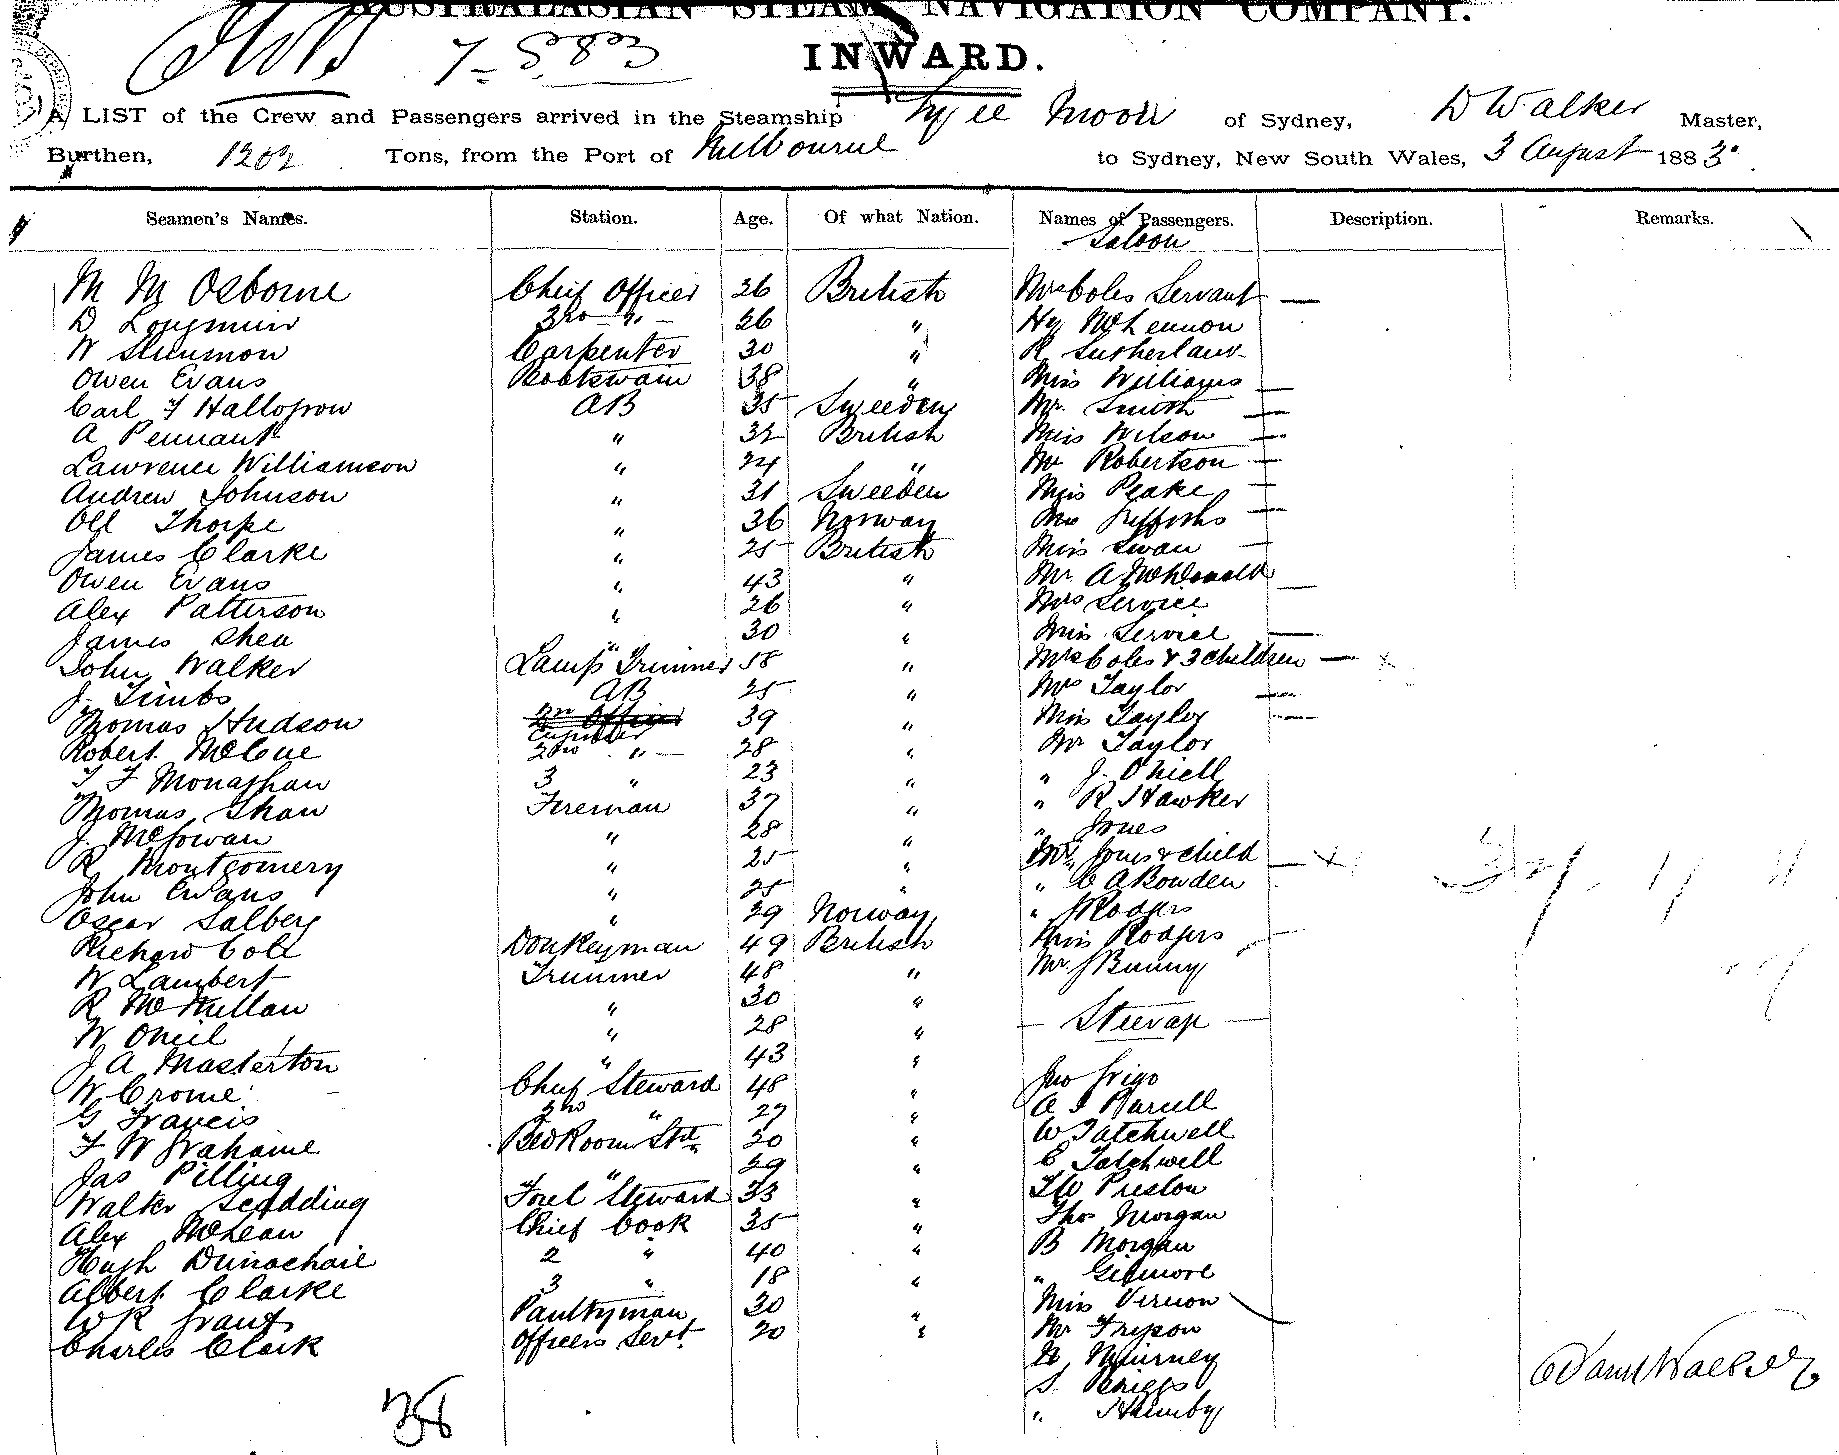 AUSTRALASIAN STEAM NAVIGATION COMPANY.
7-8.83
INWARD.
A LIST of the Crew and Passengers arrived in the Steamship Ly ee Moon of Sydney, D Walker Master,
Burthen, 1202 Tons, from the Port of Melbourne to Sydney, New South Wales, 3 August 1883.
Seamen's Names. Station. Age. Of what Nation. Names of Passengers. Description. Remarks.
Saloon
M M Osborne Chief Officer 26 British Mrs Coles Servant —
D Longmuir 3rd " — 26 " Hy McLennon
W Slinmon Carpenter 30 " R Sutherland
Owen Evans Boatswain 38 " Miss Williams —
Carl F AB 35 Sweeden Mr. Smith —
A Pennant " 32 British Miss Wilson —
Lawrence Williamson " 24 " Mr Robertson —
Andrew Johnson " 31 Sweeden Miss Peake —
Oll Thorpe " 36 Norway Mrs Griffiths —
James Clarke " 25 British Miss Swan —
Owen Evans " 43 " Mr. A McDonald
Alex Patterson " 26 " Mrs Service —
James Shea " 30 " Miss Service —
John Walker Lamp Trimmer 58 " Mrs Coles & 3 children — x
J. Timbs AB 25 " Mrs Taylor —
Thomas Hudson 39 " Miss Taylor —
Robert McCue 2nd " — 28 " Mr Taylor
T F Monaghan 3 " 23 " " J. O'Niell
Thomas Shaw Fireman 37 " " R Hawker
J. McGowan " 28 " " Jones
R Montgomery " 25 " Mrs Jones & child — x
John Evans " 25 " " C A Bowden
Oscar Salberg " 29 Norway " J Rodgers
Richard Cole Donkeyman 49 British Miss Rodgers —
W Lambert Trimmer 48 " Mr J Bunny
R McMillan " 30 "
W ONeil " 28 " — Steerage —
J A Masterton " 43 "
W Crome Chief Steward 48 " Jno Grigo
G Francis 2nd " 27 " A J Purcell
F W Grahame BedRoom Std 30 " W Tatchwell
Jas Pilling " 29 " C Tatchwell
Walter Scadding Forel Steward 33 " T W Preston
Alex McLean Chief Cook 35 " Thos Morgan
Hugh Duinachaie 2 " 40 " B Morgan
Albert Clarke 3 " 18 " " Gilmore
W R Grant Pantryman 30 " Miss Vernon
Charles Clark Officers Servt. 20 " Mr Tripson
S. Briggs
" Hamby
38